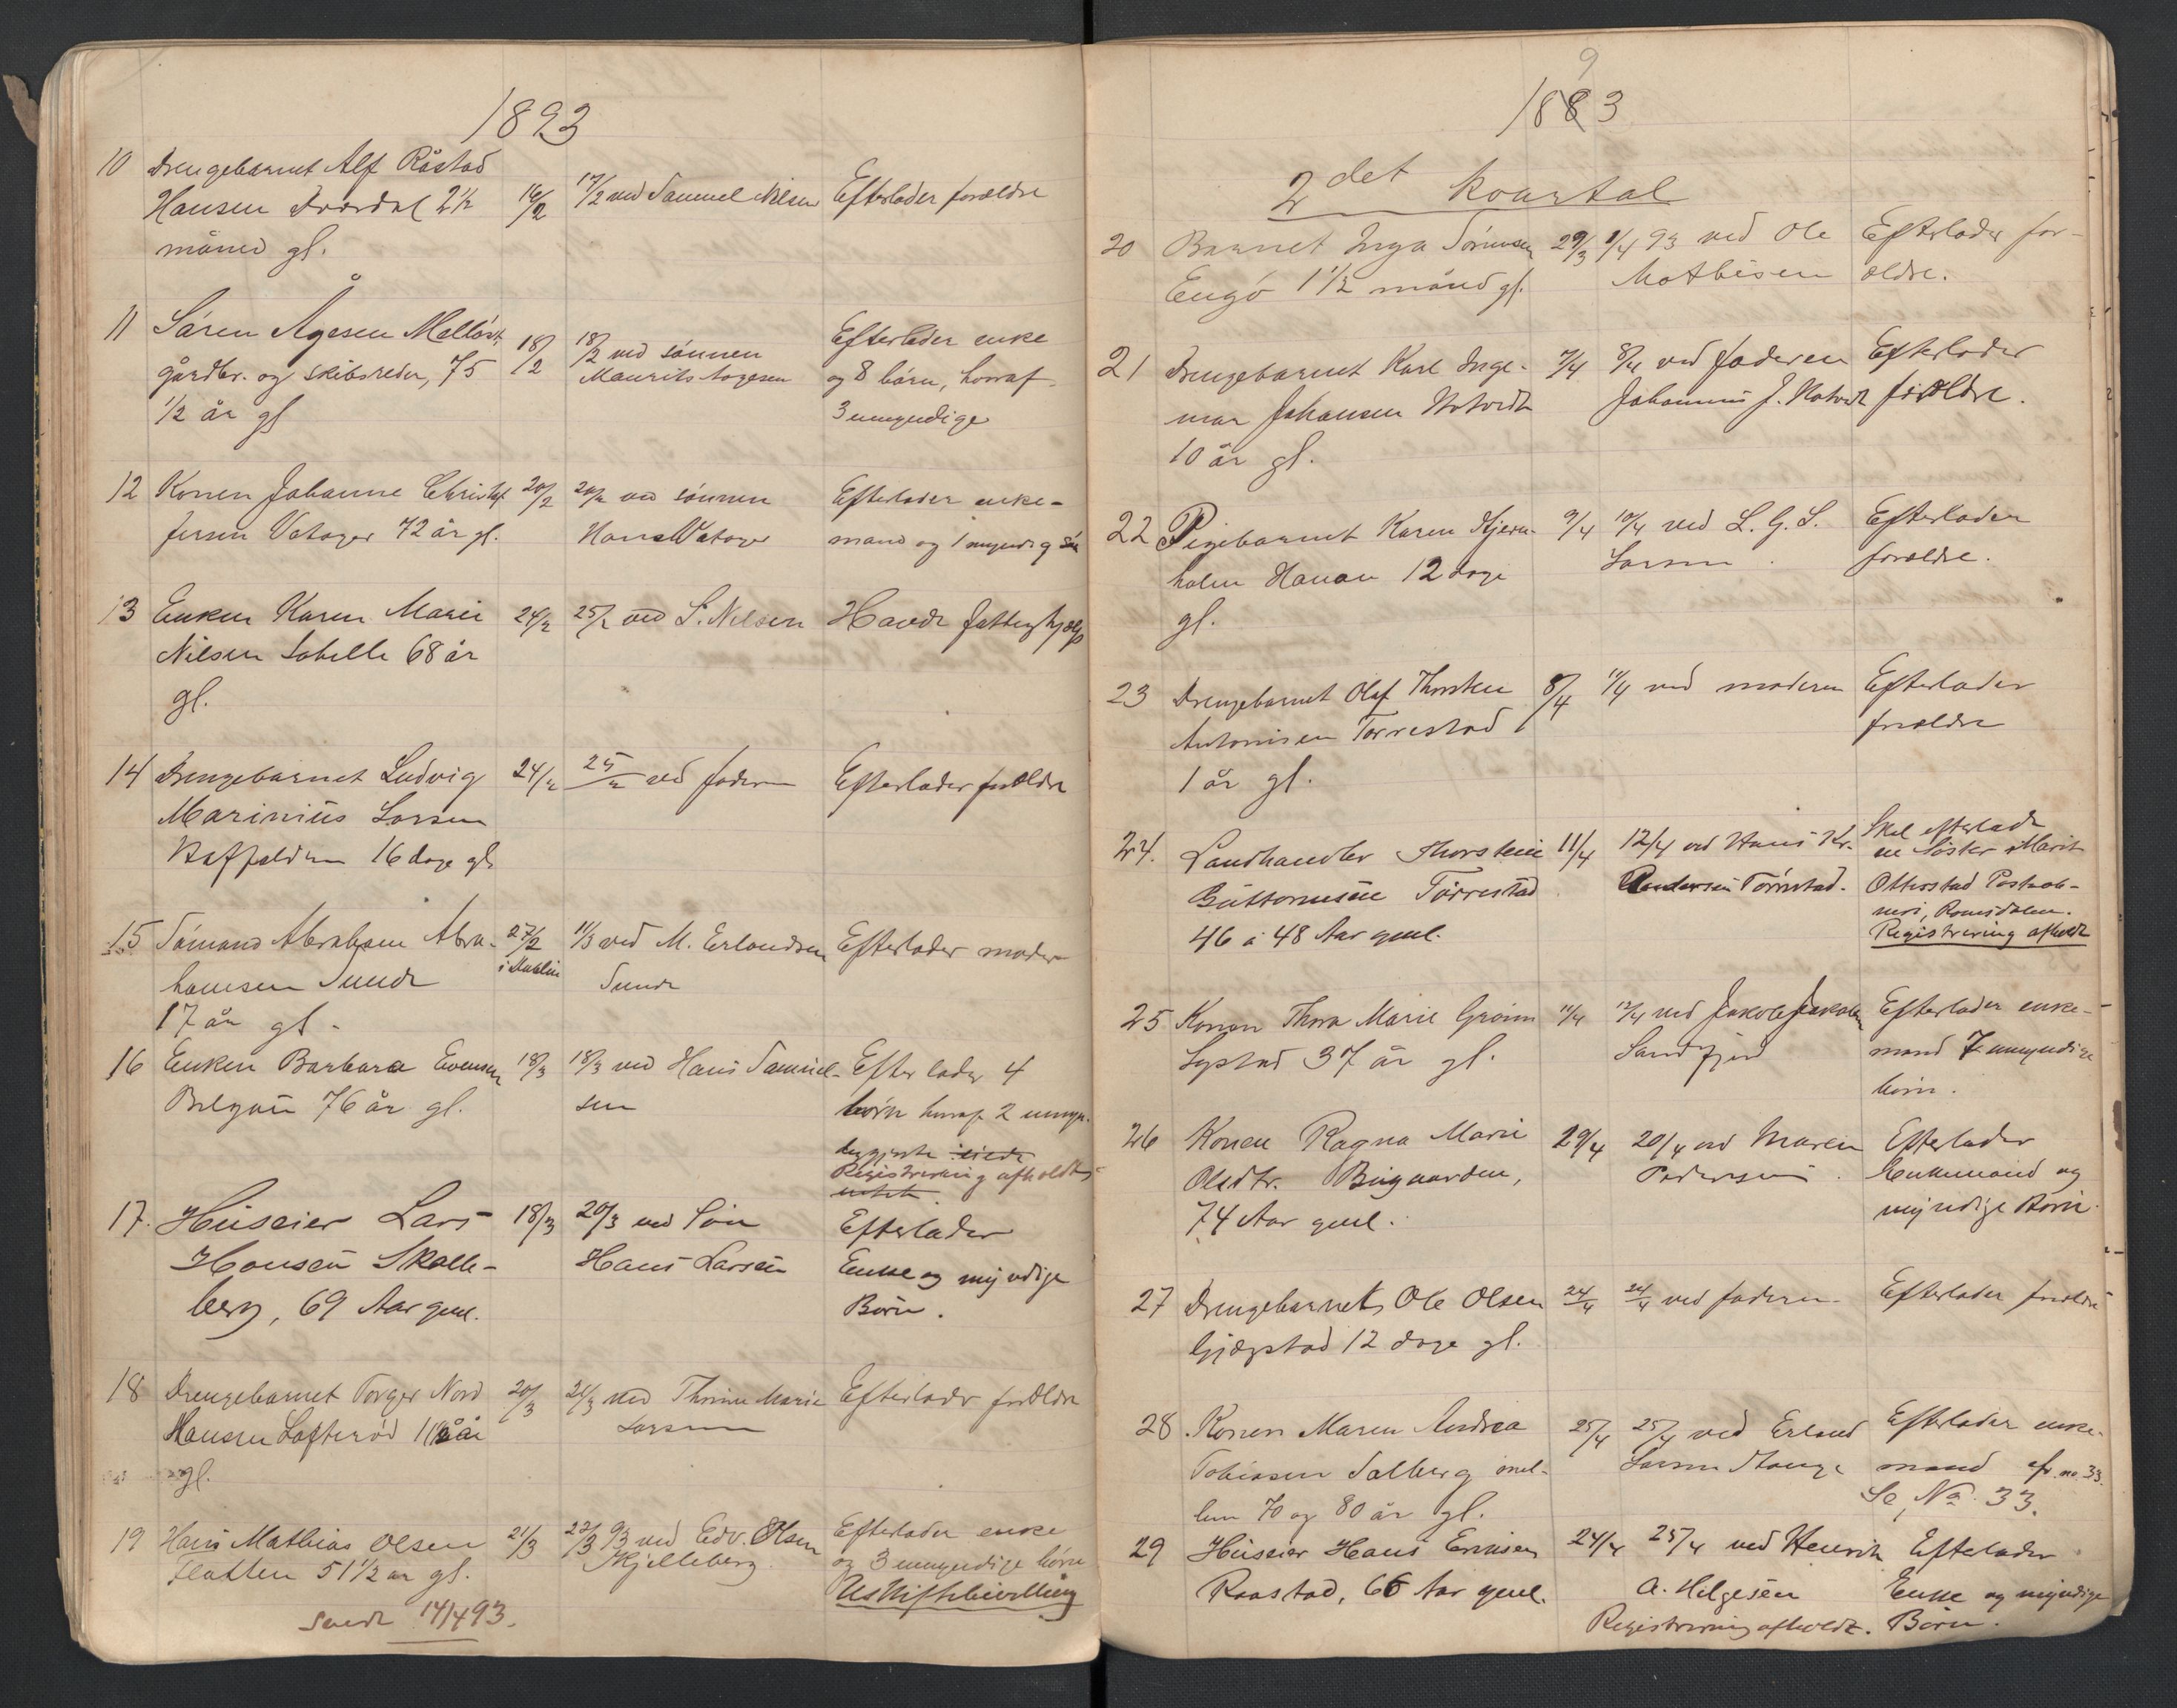 1893
10 Drengebarnet Alf Råstad 16/2 17/2 ved Samuel Nilsen Efterlader forældre
Hansen 2 1/2
måned gl.
11 Sören Ågesen Melløst 18/2 18/2 ved sønnen Efterlader enke
gårdbr. og skibsreder, 75 Maurits Aagesen og 8 børn, hvoraf
1/2 år gl 3 umyndige
12 Konen Johanne Christof 20/2 20/2 ved sønnen Efterlader enke-
fersen Vatager 72 år gl. Hans Vatager mand og 1 myndig søn
13 Enken Karen Marie 24/2 25/2 ved S. Nilsen Havde fattighjælp
Nilsen Labelle 68 år
gl.
14 Drengebarnet Ludvig 24/2 25/2 ved faderen Efterlader forældre
Marinius Larsen
16 dage gl.
15 Sømand Abraham Abra- 27/2 11/3 ved M. Erlandsen Efterlader moder
hamsen Sunde i Dublin Sunde
17 år gl.
16 Enken Barbara Evensen 18/3 18/3 ved Hans Samuel- Efterlader 4
76 år gl. sen børn hvoraf 2 umyn-
Registrering afholdt
17. Huseier Lars 18/3 20/3 ved Søn Efterlader
Hansen Skalle- Hans Larsen Enke og myndige
berg, 69 Aar gml. Børn.
18 Drengebarnet Torger Nord 20/3 21/3 ved Thrine Marie Efterlader forældre
Hansen Lofterød år Larsen
gl.
19 Hans Mathias Olsen 21/3 22/3 93 ved Edv. Olsen Efterlader enke
Flatten 51 1/2 år gl. Kjelleberg og 3 umyndige børn
Uskiftebevilling
Sendt 14/4 93.
1883
9
2det kvartal
20 Barnet Inga Sörensen 29/3 1/4 93 ved Ole Efterlader for-
Engö 1 1/2 måned gl. Mathisen ældre.
21 Drengebarnet Karl Inge- 7/4 8/4 ved faderen Efterlader
mar Johansen Hotvedt Johannes J. Hotvedt forældre.
10 år gl.
22 Pigebarnet Karen Hjern- 9/4 10/4 ved L. G. S. Efterlader
holm Hanan 12 dage Larsen. forældre.
gl.
23 Drengebarnet Olaf Thorsten 8/4 11/4 ved moderen Efterlader
Antonisen Torrestad forældre
1 år gl.
24. Landhandler Thorstein 11/4 12/4 ved Hans Kr. Skal efterlade
Guttormsen Törrestad Andersen Törrestad. en Søster Marit
46 à 48 Aar gml. Otterstad Postaab-
neri, Romsdalen.
Registrering afholdt
25 Konen Thora Marie Grönn 11/4 12/4 ved Jakob Jakobsen Efterlader enke-
Lystad 37 år gl. Sandefjord mand 7 umyndige
børn.
26 Konen Ragna Marie 29/4 20/4 ved Maren Efterlader
Olsdtr. Bugaarden, Pedersen. Enkemand og
74 Aar gml. myndige Børn.
27 Drengebarnet Ole Olsen 24/4 24/4 ved faderen Efterlader forældre
Gjægstad 12 dage gl.
28. Konen Maren Andrea 25/4 25/4 ved Erland Efterlader enke-
Tobiasen Solberg mel- Larsen Stange mand cfr. no. 33.
lem 70 og 80 år gl. Se No. 33.
29 Huseier Hans Eriksen 24/4 25/4 ved Henrik Efterlader
Raastad, 66 Aar gml. A. Helgesen Enke og myndige
Registrering afholdt. Børn.